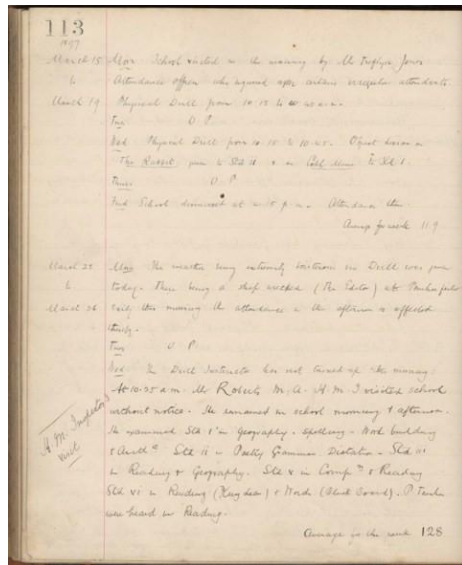 113
1897
March 15 Mon School visited in the morning by Mr Jones
to Attendance officer who inquired after certain irregular attendants.
March 19 Physical Drill from 10.15 to 10.40 a.m.
Tues O P
Wed Physical Drill from 10.15 to 10.45. Object lesson on
The Rabbit, given to Std II & on Coal Mine to Std I.
Thurs O P
Frid School dismissed at 4.15 p.m. Attendance
Average for week 119
March 22 Mon The weather being extremely boisterous no Drill was given
to today. There being a ship wrecked (The Editor) at
March 26 early this morning the attendance in the afternoon is affected
thereby.
Tues O P
Wed The Drill Instructor has not turned up this morning.
At 10.35 a.m. Mr Roberts M.A. H.M.I visited school
H.M. Inspector's
visit
without notice. He remained in school morning & afternoon.
He examined Std I in Geography - Spelling - Word building
& Arith. Std II in Poetry Grammar. Dictation. Std III
in Reading & Geography. Std V in Compn & Reading
Std VI in Reading & Words (Black Board). P Teacher
were heard in Reading.
Average for the week 128